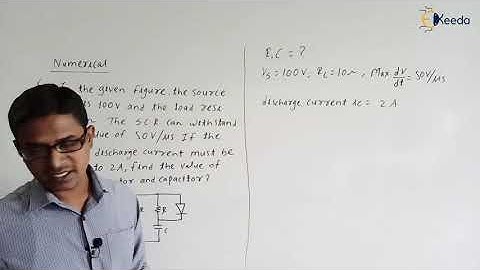 Ekeeda
Numerical
the given figure, the source
is 100V and the load
The SCR can withstand
value of 50V/μs If the
discharge current must be
to 2A, find the value of
and capacitor?
R
C
R, C = ?
Vs = 100V, RL = 10Ω, Max dv/dt = 50V/μs
discharge current ic = 2A